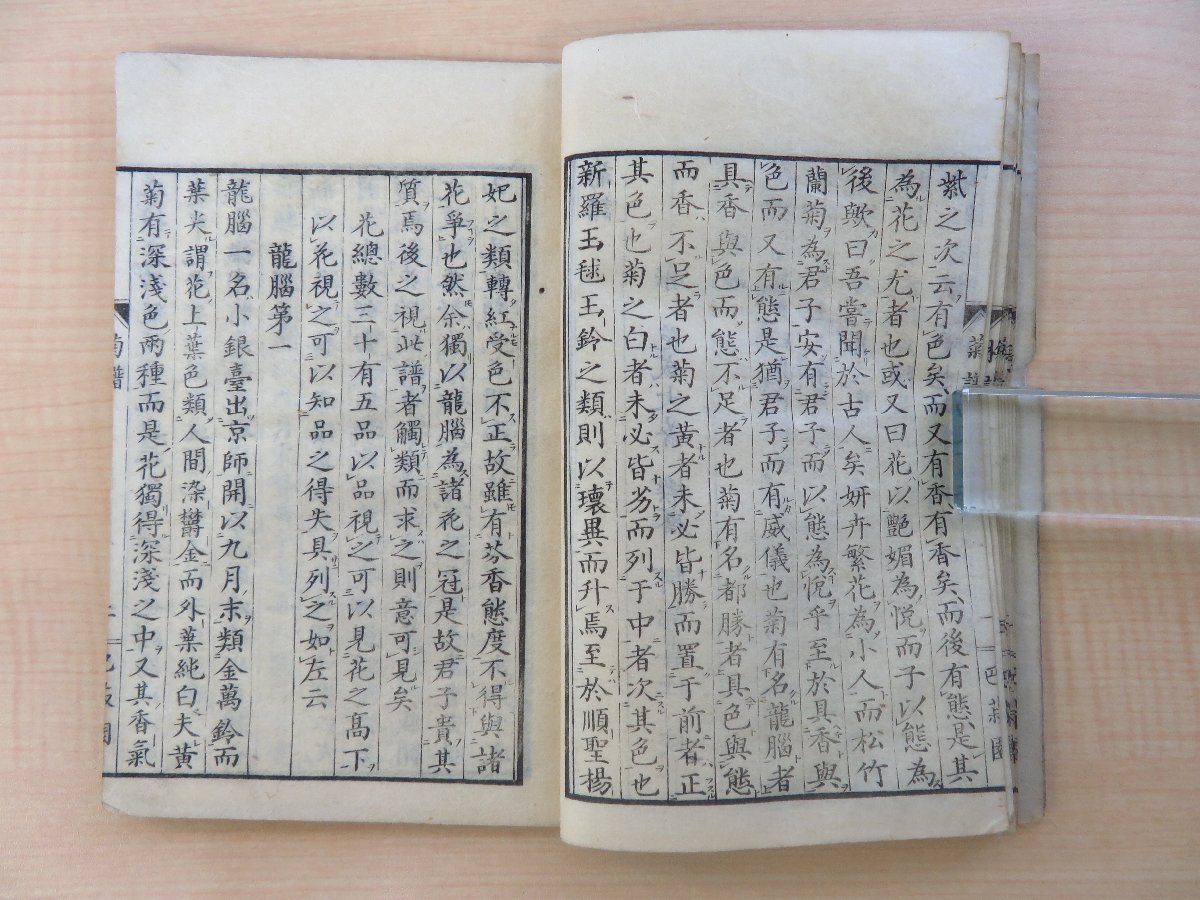 紫之次云有色矣而又有香有香矣而後有態是其
為花之尤者也或又曰花以艷媚為悅而子以態為
後歟曰吾嘗聞於古人矣妍卉繁花為小人而松竹
蘭菊為君子安有君子而以態為悅乎至於具香與
色而又有態是猶君子而有威儀也菊有名龍腦者
具香與色而態不足者也菊有名都勝者具色與態
而香不足者也菊之黃者未必皆勝而置于前者正
其色也菊之白者未必皆劣而列于中者次其色也
新羅玉毬玉鈴之類則以瓌異而升焉至於順聖楊
妃之類轉紅受色不正故雖有芬香態度不得與諸
花爭也然余獨以龍腦為諸花之冠是故君子貴其
質焉後之視此譜者觸類而求之則意可見矣
花總數三十有五品以品視之可以見花之高下
以花視之可以知品之得失具列之如左云
龍腦第一
龍腦一名小銀臺出京師開以九月末類金萬鈴而
葉尖謂花上葉色類人間染鬱金而外葉純白夫黃
菊有深淺色兩種而是花獨得深淺之中又其香氣
菊譜